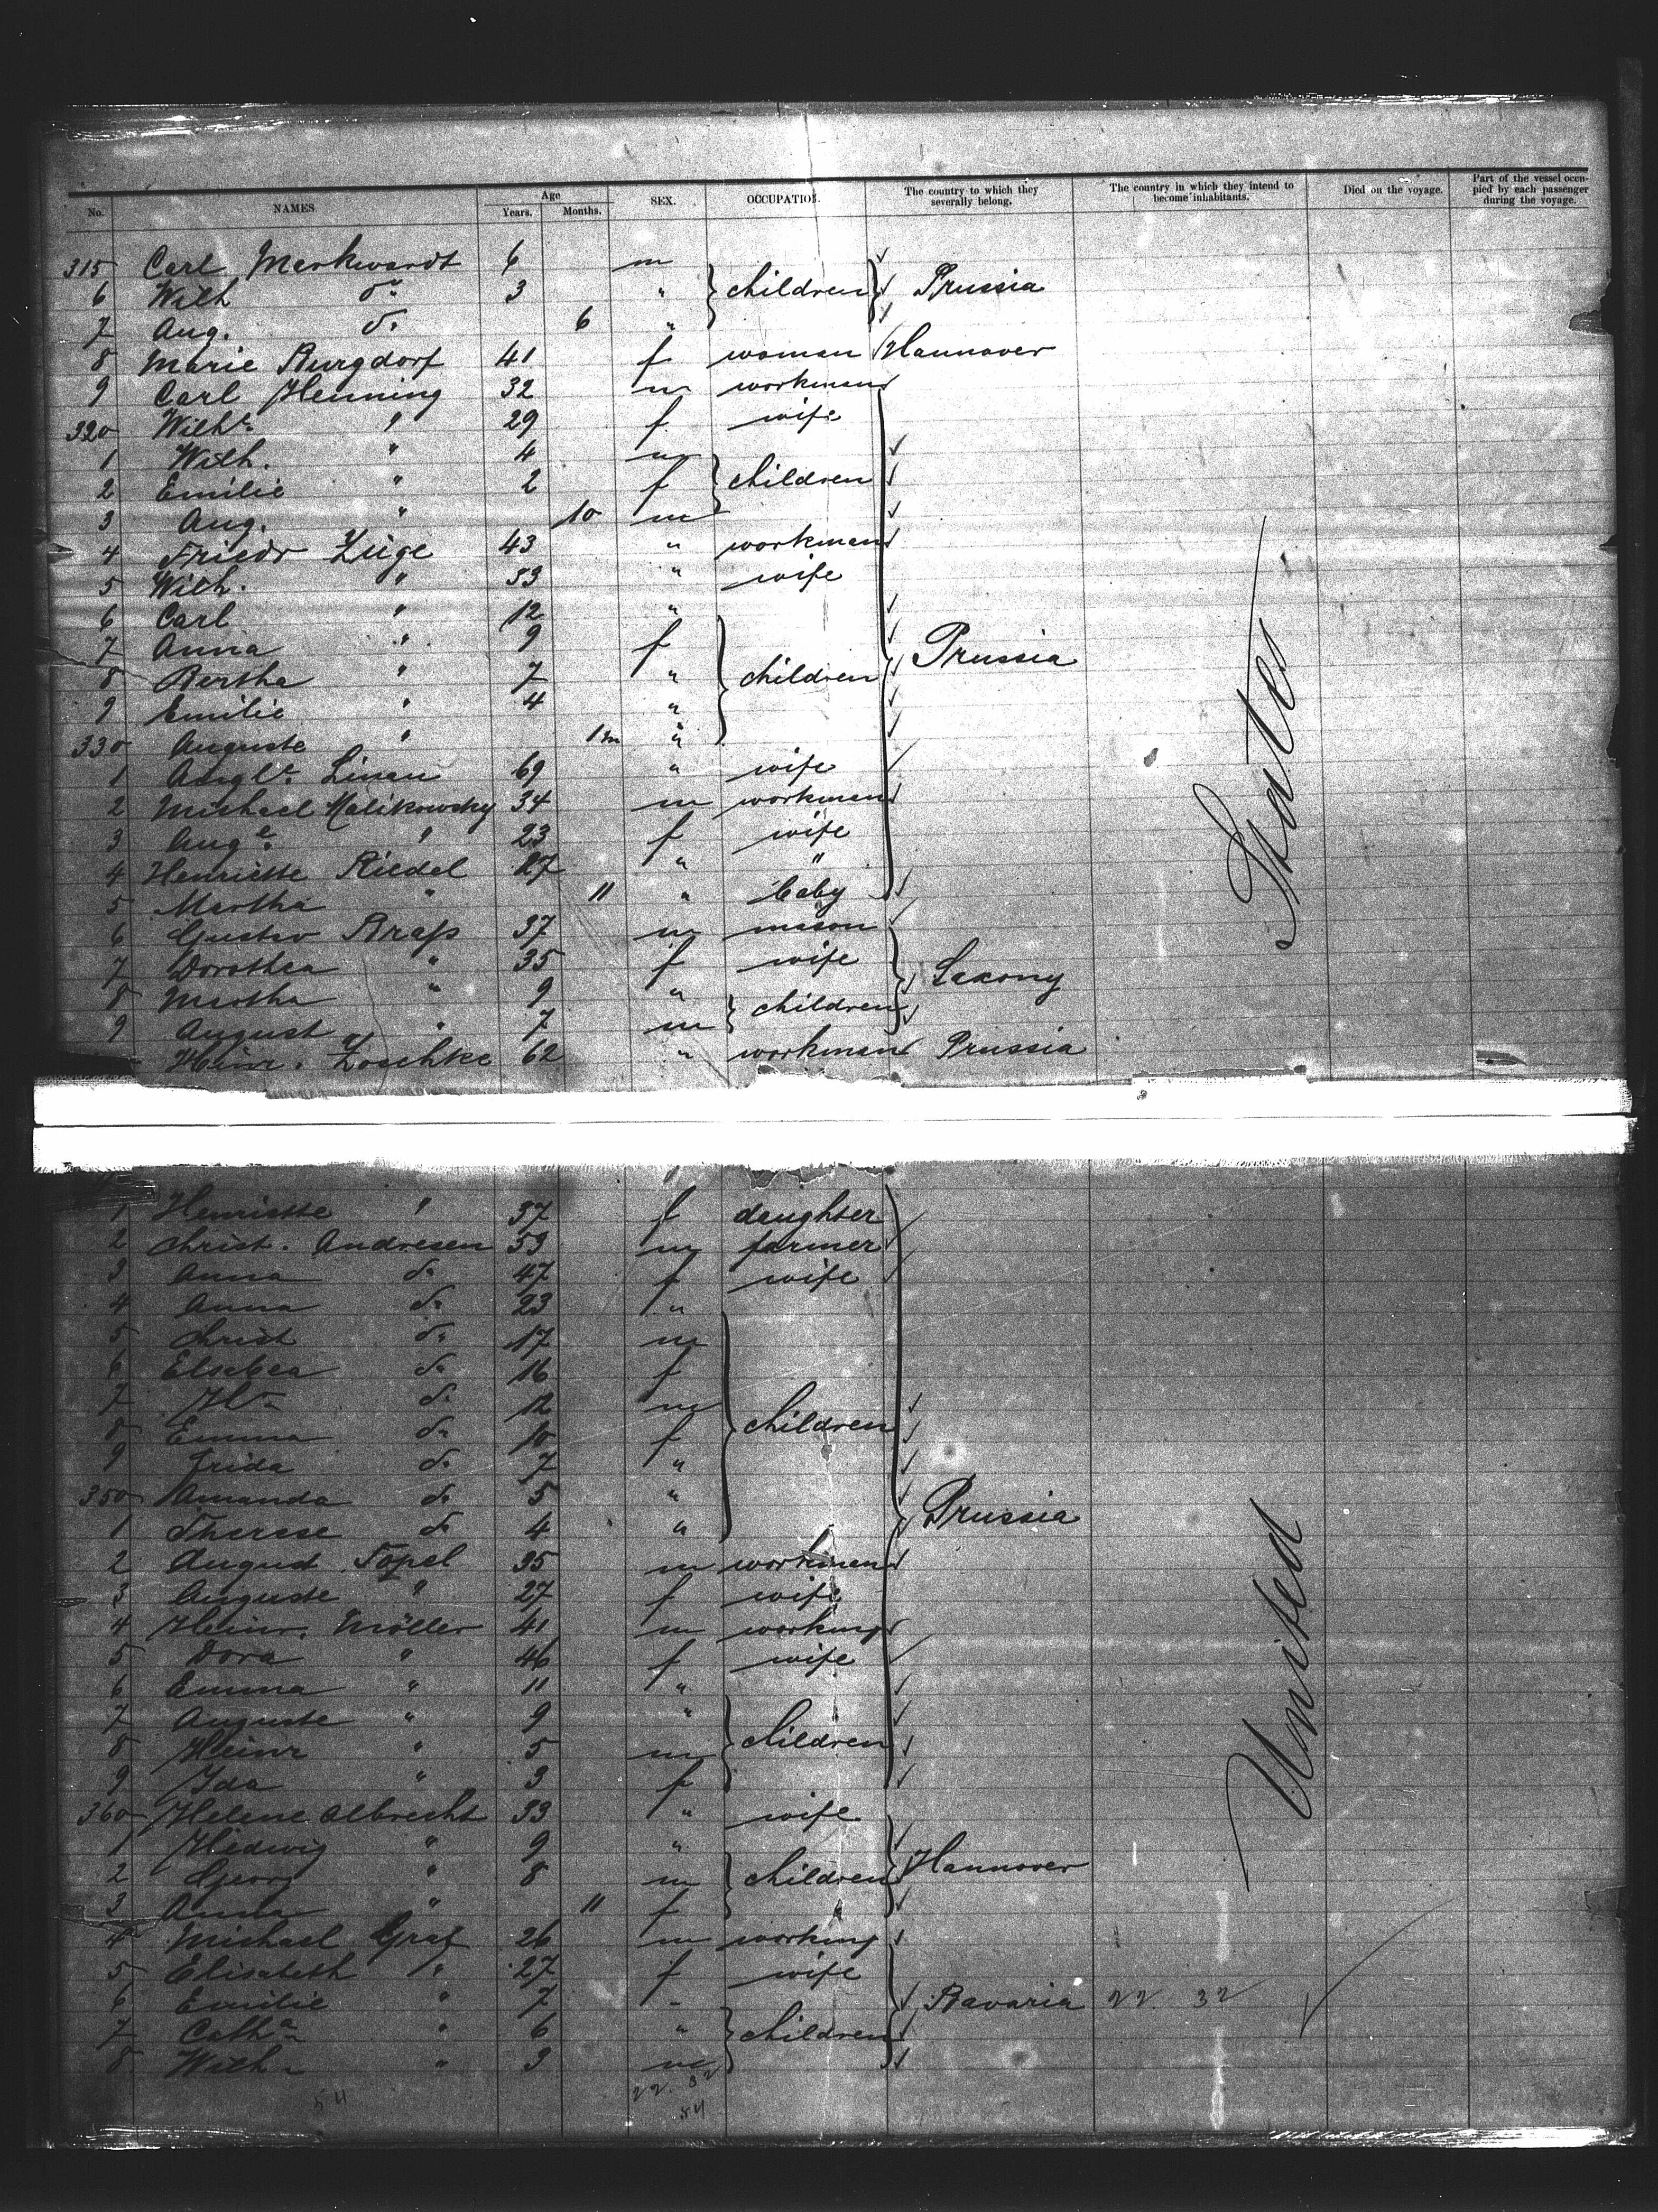 No. NAMES. Age Years. Months. SEX. OCCUPATION. The country to which they severally belong. The country in which they intend to become inhabitants. Died on the voyage. Part of the vessel occupied by each passenger during the voyage.
315 Carl Markwardt 6 m
6 Wilh do 3 " children Prussia
7 Aug. do 6 "
8 Marie Burgdorf 41 f woman Hannover
9 Carl Henning 32 m workman
320 Wilhe " 29 f wife
1 Wilh. " 4 m
2 Emilie " 2 f children
3 Aug. " 10 m
4 Friedr Züge 43 " workman
5 Wilh. " 33 " wife
6 Carl " 12 "
7 Anna " 9 f Prussia
8 Bertha " 7 " children
9 Emilie " 4 "
330 Auguste " 1m "
1 Linau 69 " wife
2 Michael Malikowsky 34 m workman
3 Auge " 23 f wife
4 Henriette Riedel 27 " "
5 Martha " 11 " baby
6 Gustav Brass 37 m mason
7 Dorothea " 35 f wife Saxony
8 Martha " 9 " children
9 August " 7 m
Heinr. Zoschke 62 " workman Prussia
1 Henriette " 37 f daughter
2 Christ. Andresen 53 m farmer
3 Anna do 47 f wife
4 Anna do 23 "
5 Christ do 17 m
6 Elsabea do 16 f
7 Hr do 12 m
8 Emma do 10 f children
9 Frida do 7 "
350 Amanda do 5 " Prussia
1 Therese do 4 "
2 August Topel 35 m workman
3 Auguste " 27 f wife
4 Heinr. Möller 41 m workmn
5 Dora " 46 f wife
6 Emma " 11 "
7 Auguste " 9 "
8 Heinr " 5 m children
9 Ida " 3 f
360 Helene Albrecht 33 " wife
1 Hedwig " 9 "
2 Georg " 8 m children Hannover
3 Anna " 11 f
4 Michael Graf 26 m workmn
5 Elisabeth " 27 f wife
6 Emilie " 7 " Bavaria 22 32
7 Catha " 6 " children
8 Wilh " 3 m
22 32
54 54
United States